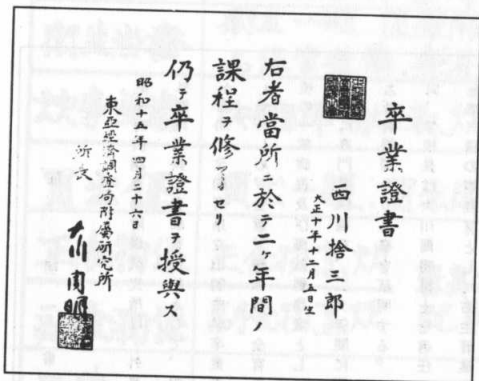 卒業證書
西川捨三郎
大正十年十二月五日生
右者當所ニ於テ二年間ノ
課程ヲ修了セリ
仍テ卒業證書ヲ授與ス
昭和十五年四月二十六日
東亞經濟調査局附屬研究所
所長 大川周明